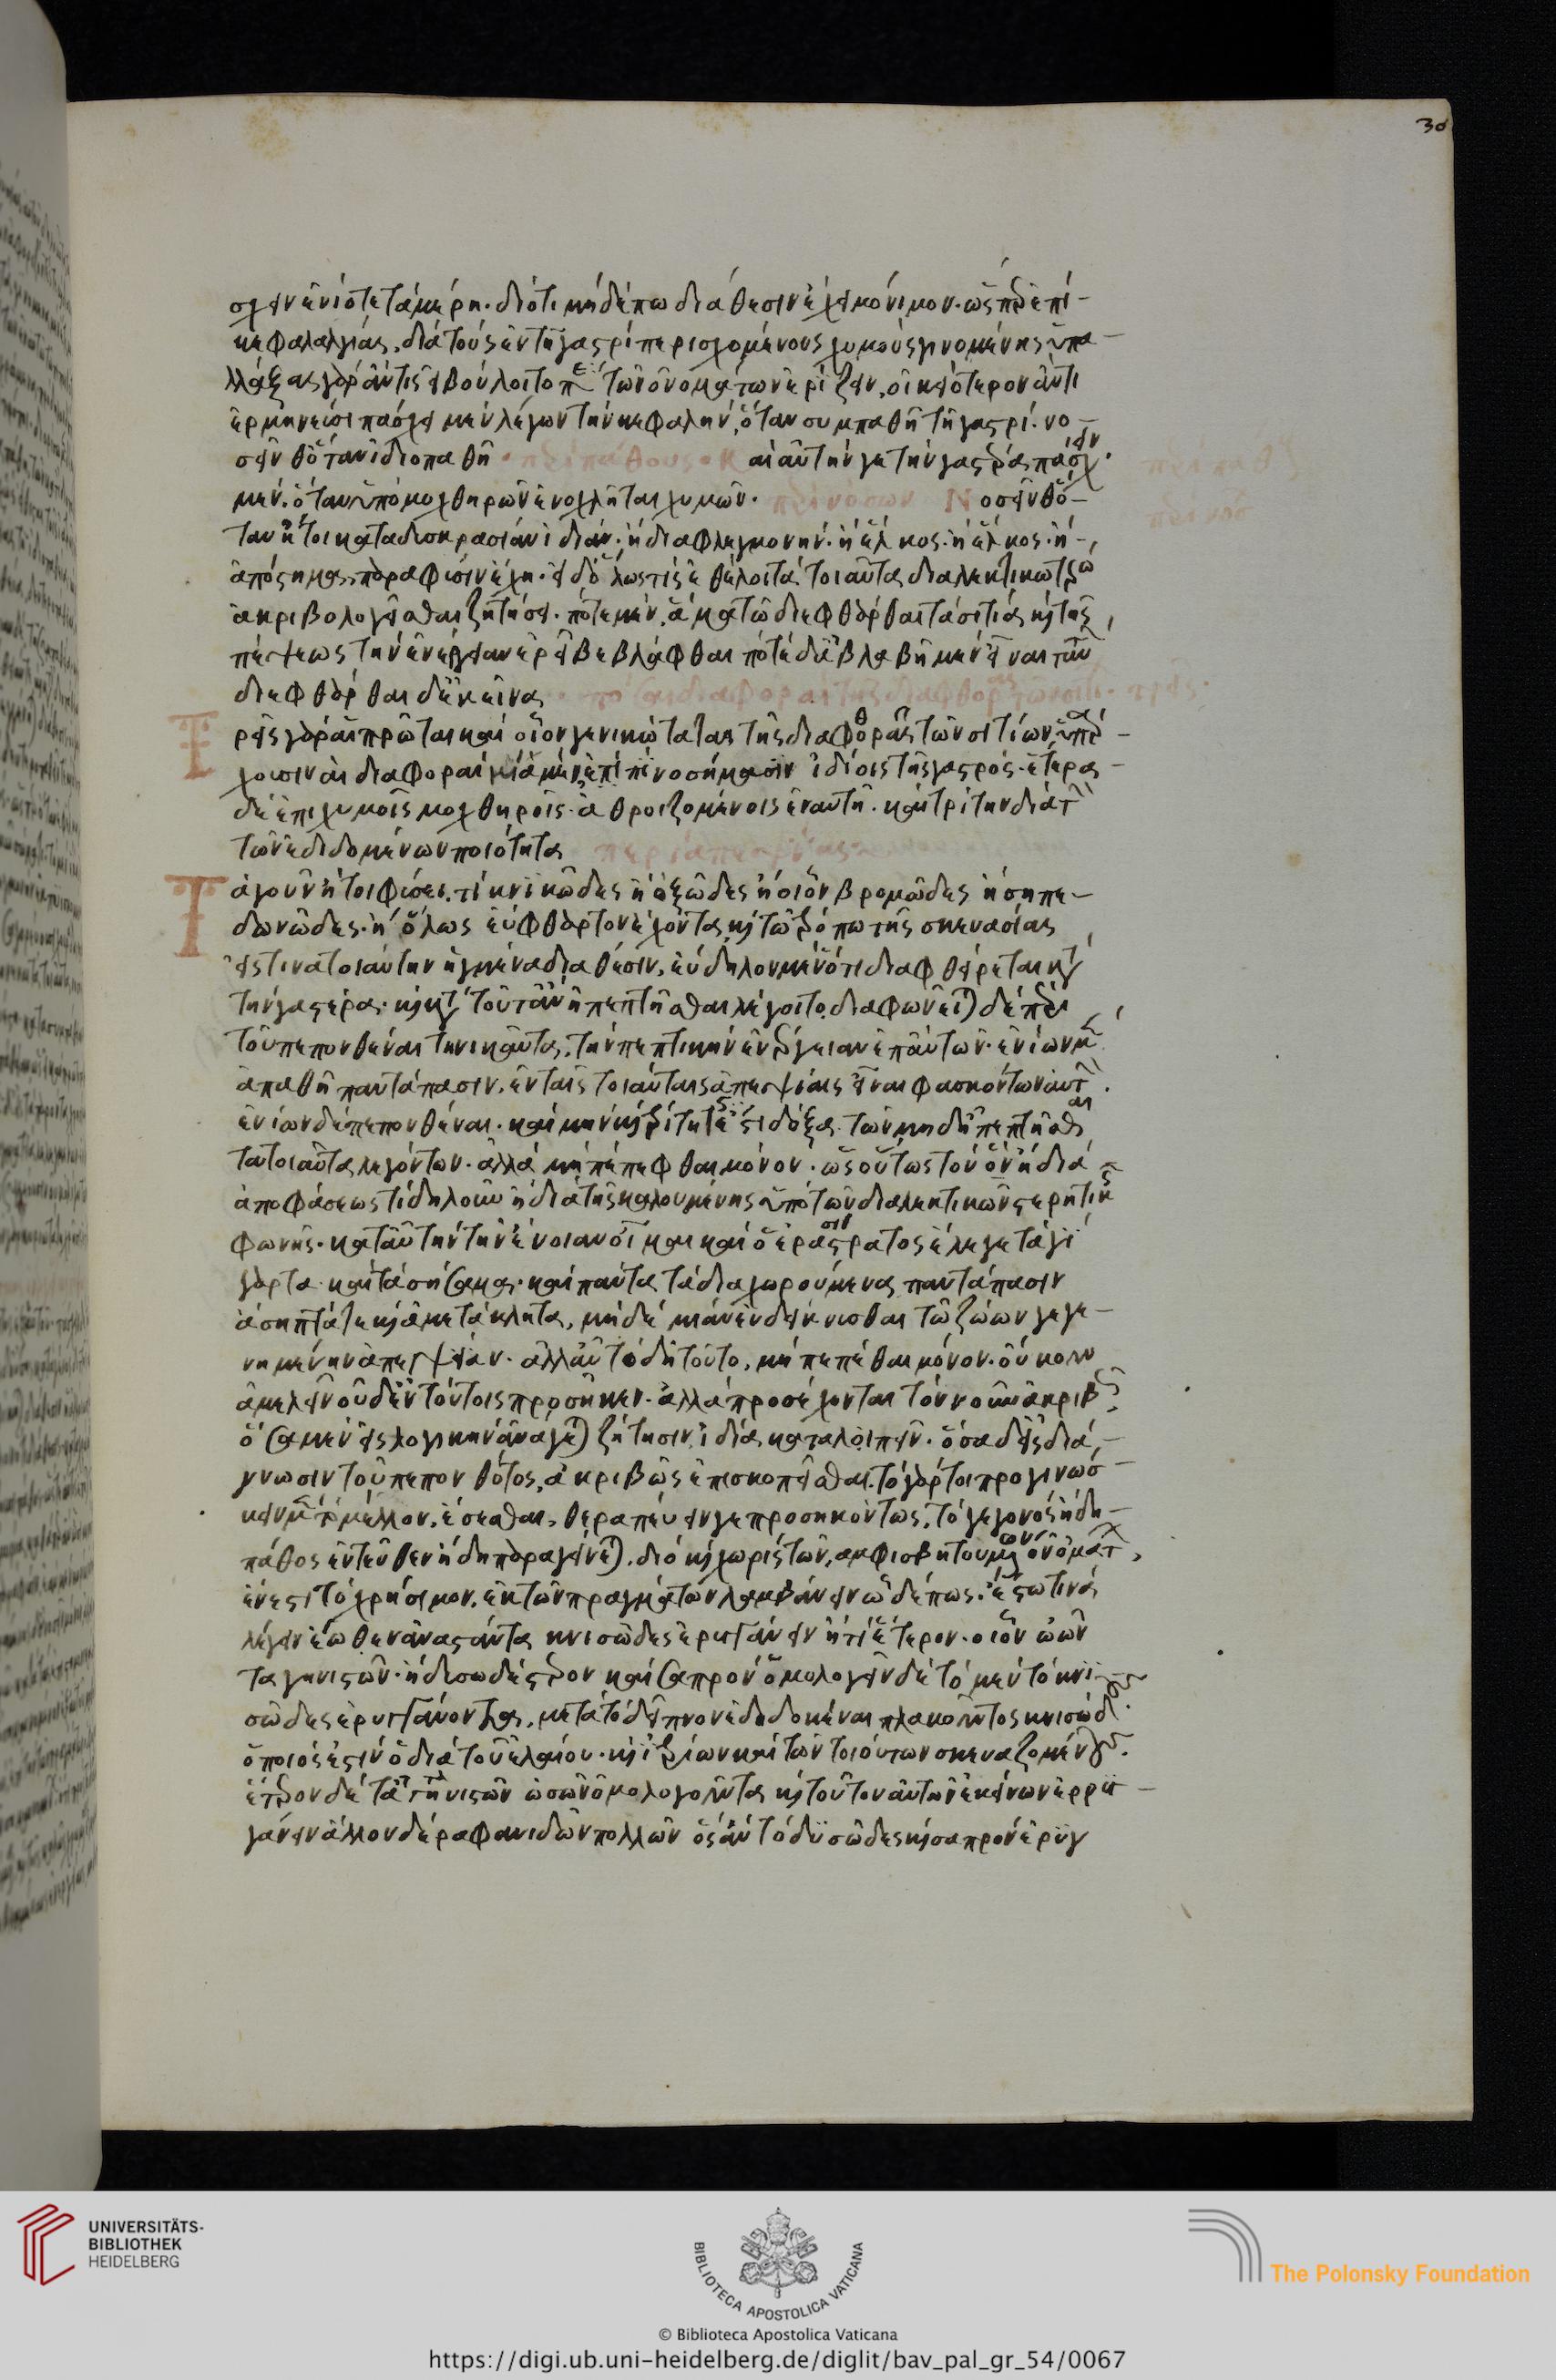 30
σχειν ἐνίοτε τὰ μέρη. διότι μηδέπω διάθεσιν ἔχει μόνιμον. ὥσπερ ἐπὶ
κεφαλαλγίας, διὰ τοὺς ἐν τῆ γαστρὶ περιεχομένους χυμοὺς γινομένης ὑπα
λλάξας γὰρ ἄν τις εἰ βούλοιτο περὶ τῶν ὀνομάτων ἐρίζειν, οἰκειότερον ἄν τι
ἑρμηνεύσι πάσχει μὲν λέγων τὴν κεφαλήν, ὅταν συμπαθῆ τῆ γαστρί. νο
σεῖν δ' ὅταν ἰδιοπαθῆ. περὶ πάθους. Καὶ αὐτήν γε τὴν γαστέρα πάσχειν.
μέν. ὅταν ὑπὸ μοχθηρῶν ἐνοχλῆται χυμῶν. περὶ νόσων Νοσεῖν δ' ὅ
ταν ἤτοι κατὰ δυσκρασίαν ἰδίαν. ἢ διὰ φλεγμονήν. ἢ ἕλκος. ἢ ἕλκος. ἢ
ἀπόστημα, παρὰ φύσιν ἔχη. εἰ δ' ὅλως τις ἐθέλοι τὰ τοιαῦτα διαλεκτικωτέρω
ἀκριβολογεῖσθαι ζητήσει. πότε μὲν, ἅμα τῶ διεφθάρθαι τὰ σιτία, καὶ τῆς
πέψεως τὴν ἐνέργειαν ἐρεῖ βεβλάφθαι πότε δὲ ἀβλαβῆ μὲν εἶναι ταύτην
διεφθάρθαι δ' ἐκεῖνα πόσαι διαφοραὶ τῆς διαφθορᾶς τῶν σιτίων. τρεῖς.
Τρεῖς γὰρ αἱ πρῶται καὶ οἷον γενικώταται τῆς διαφθορᾶς τῶν σιτίων ὑπάρ
χουσιν αἱ διαφοραὶ μία μὲν ἐπί τινοσήμασιν ἰδίοις τῆς γαστρός. ἑτέρα
δὲ ἐπὶ χυμοῖς μοχθηροῖς. ἀθροιζομένοις ἐν αὐτῆ. καὶ τρίτη διὰ τὴν
τῶν ἐδηδομένων ποιότητα περὶ ἀπεψίας
Τὰ γοῦν ἤτοι φύσει, τὶ κνικῶδες ἢ ὀξῶδες ἢ οἷον βρομῶδες ἢ σηπε
δονῶδες. ἢ ὅλως εὔφθαρτον ἔχοντα, καὶ τῶ τρόπω τῆς σκευασίας
εἴς τινα τοιαύτην ἠγμένα διάθεσιν, εὔδηλον μὲν ὅτι διαφθείρεται κατὰ
τὴν γαστέρα. καὶ κατὰ τοῦτ' ἂν ἠπεπτῆσθαι λέγοιτο. διαφωνεῖται δὲ περὶ
τοῦ πεπονθέναι τηνικαῦτα, τὴν πεπτικὴν ἐνέργειαν ἐπ' αὐτῶν. ἐνίων μὲν
ἀπαθῆ παντάπασιν, ἐν ταῖς τοιαύταις ἀπεψίαις εἶναι φασκόντων αὐτήν.
ἐνίων δὲ πεπονθέναι. καὶ μὴν καὶ τρίτη τίς ἐστι δόξα τῶν μηδ' ἠπεπτῆσθαι
τὰ τοιαῦτα λεγόντων. ἀλλὰ μὴ πεπέφθαι μόνον. ὡς οὕτως τὸν ὂν ἢ διὰ
ἀποφάσεως τὶ δηλοῦν ἢ διὰ τῆς καλουμένης ὑπὸ τῶν διαλεκτικῶν στερητικῆς
φωνῆς. κατ' αὐτὴν τὴν ἔννοιαν οἶμαι καὶ ὁ ἐρασίστρατος ἔλεγε τὰ γί
γαρτα. καὶ τὰ σήσαμα. καὶ πάντα τὰ διαχωρούμενα παντάπασιν
ἄσηπτά τε καὶ ἀμετάβλητα, μηδεμίαν ἐνδείκνυσθαι τῶ ζώων γεγε
νημένην ἀπεψίαν. ἀλλ' αὐτὸ δὴ τοῦτο, μὴ πεπέφθαι μόνον. οὔκουν
ἀμελεῖν οὐδ' ἐν τούτοις προσῆκεν. ἀλλὰ προσέχοντας τὸν νοῦν ἀκριβῶς.
ὅσα μὲν εἰς λογικὴν ἀνάγεται ζήτησιν ἰδία καταλείπειν. ὅσα δ' εἰς διά
γνωσιν τοῦ πεπονθότος, ἀκριβῶς ἐπισκοπεῖσθαι. τὸ γάρ τοι προγινώσ
κειν μὲν τὸ μέλλον ἔσεσθαι, θεραπεύειν γε προσηκόντως, τὸ γεγονὸς ἤδη
πάθος ἐντεῦθεν ἤδη παραγίνεται. διὸ καὶ χωρὶς τῶν, ἀμφισβητουμένων ὀνομάτων,
ἔνεστι τὸ χρήσιμον, ἐκ τῶν πραγμάτων λαμβάνειν ὧδέ πως. ἔστω τινὰ
λέγειν ἕωθεν ἀναστάντα κνισῶδες ἐρυγγάνειν ἤ τι ἕτερον. οἷον ὠῶν
ταγηνιστῶν. ἢ δυσωδέστερον καὶ σαπρὸν ὁμολογεῖν δὲ τὸ μὲν τὸ κνι
σῶδες ἐρυγγάνοντα, μετὰ τὸ δεῖπνον ἐδηδοκέναι πλακοῦντος κνισώδους.
ὁποῖός ἐστιν ὁ διὰ τοῦ ἐλαίου. καὶ ἰτρίων καὶ τῶν τοιούτων σκευαζομένων.
ἕτερον δὲ ταγηνιστῶν ὠῶν ὁμολογοῦντα καὶ τοῦτον αὐτῶν ἐκείνων ἐρρυ
γάνειν ἄλλον δὲ ῥαφανίδων πολλῶν ὃς ἂν τὸ δυσῶδες καὶ σαπρὸν ἐρυγ
UNIVERSITÄTS-
BIBLIOTHEK
HEIDELBERG
BIBLIOTECA APOSTOLICA VATICANA
The Polonsky Foundation
© Biblioteca Apostolica Vaticana
https://digi.ub.uni-heidelberg.de/diglit/bav_pal_gr_54/0067